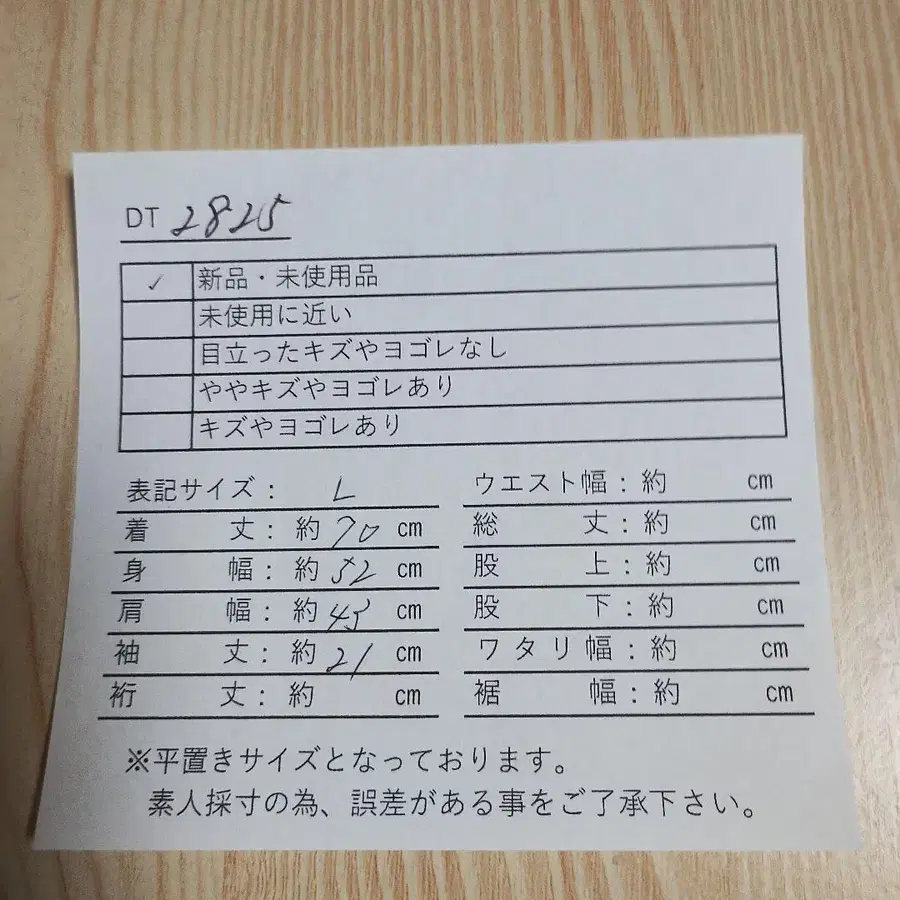 DT 2825
✓ 新品・未使用品
未使用に近い
目立ったキズやヨゴレなし
ややキズやヨゴレあり
キズやヨゴレあり
表記サイズ： L
着丈：約70cm
身幅：約52cm
肩幅：約43cm
袖丈：約21cm
裄丈：約 cm
ウエスト幅：約 cm
総丈：約 cm
股上：約 cm
股下：約 cm
ワタリ幅：約 cm
裾幅：約 cm
※平置きサイズとなっております。
素人採寸の為、誤差がある事をご了承下さい。